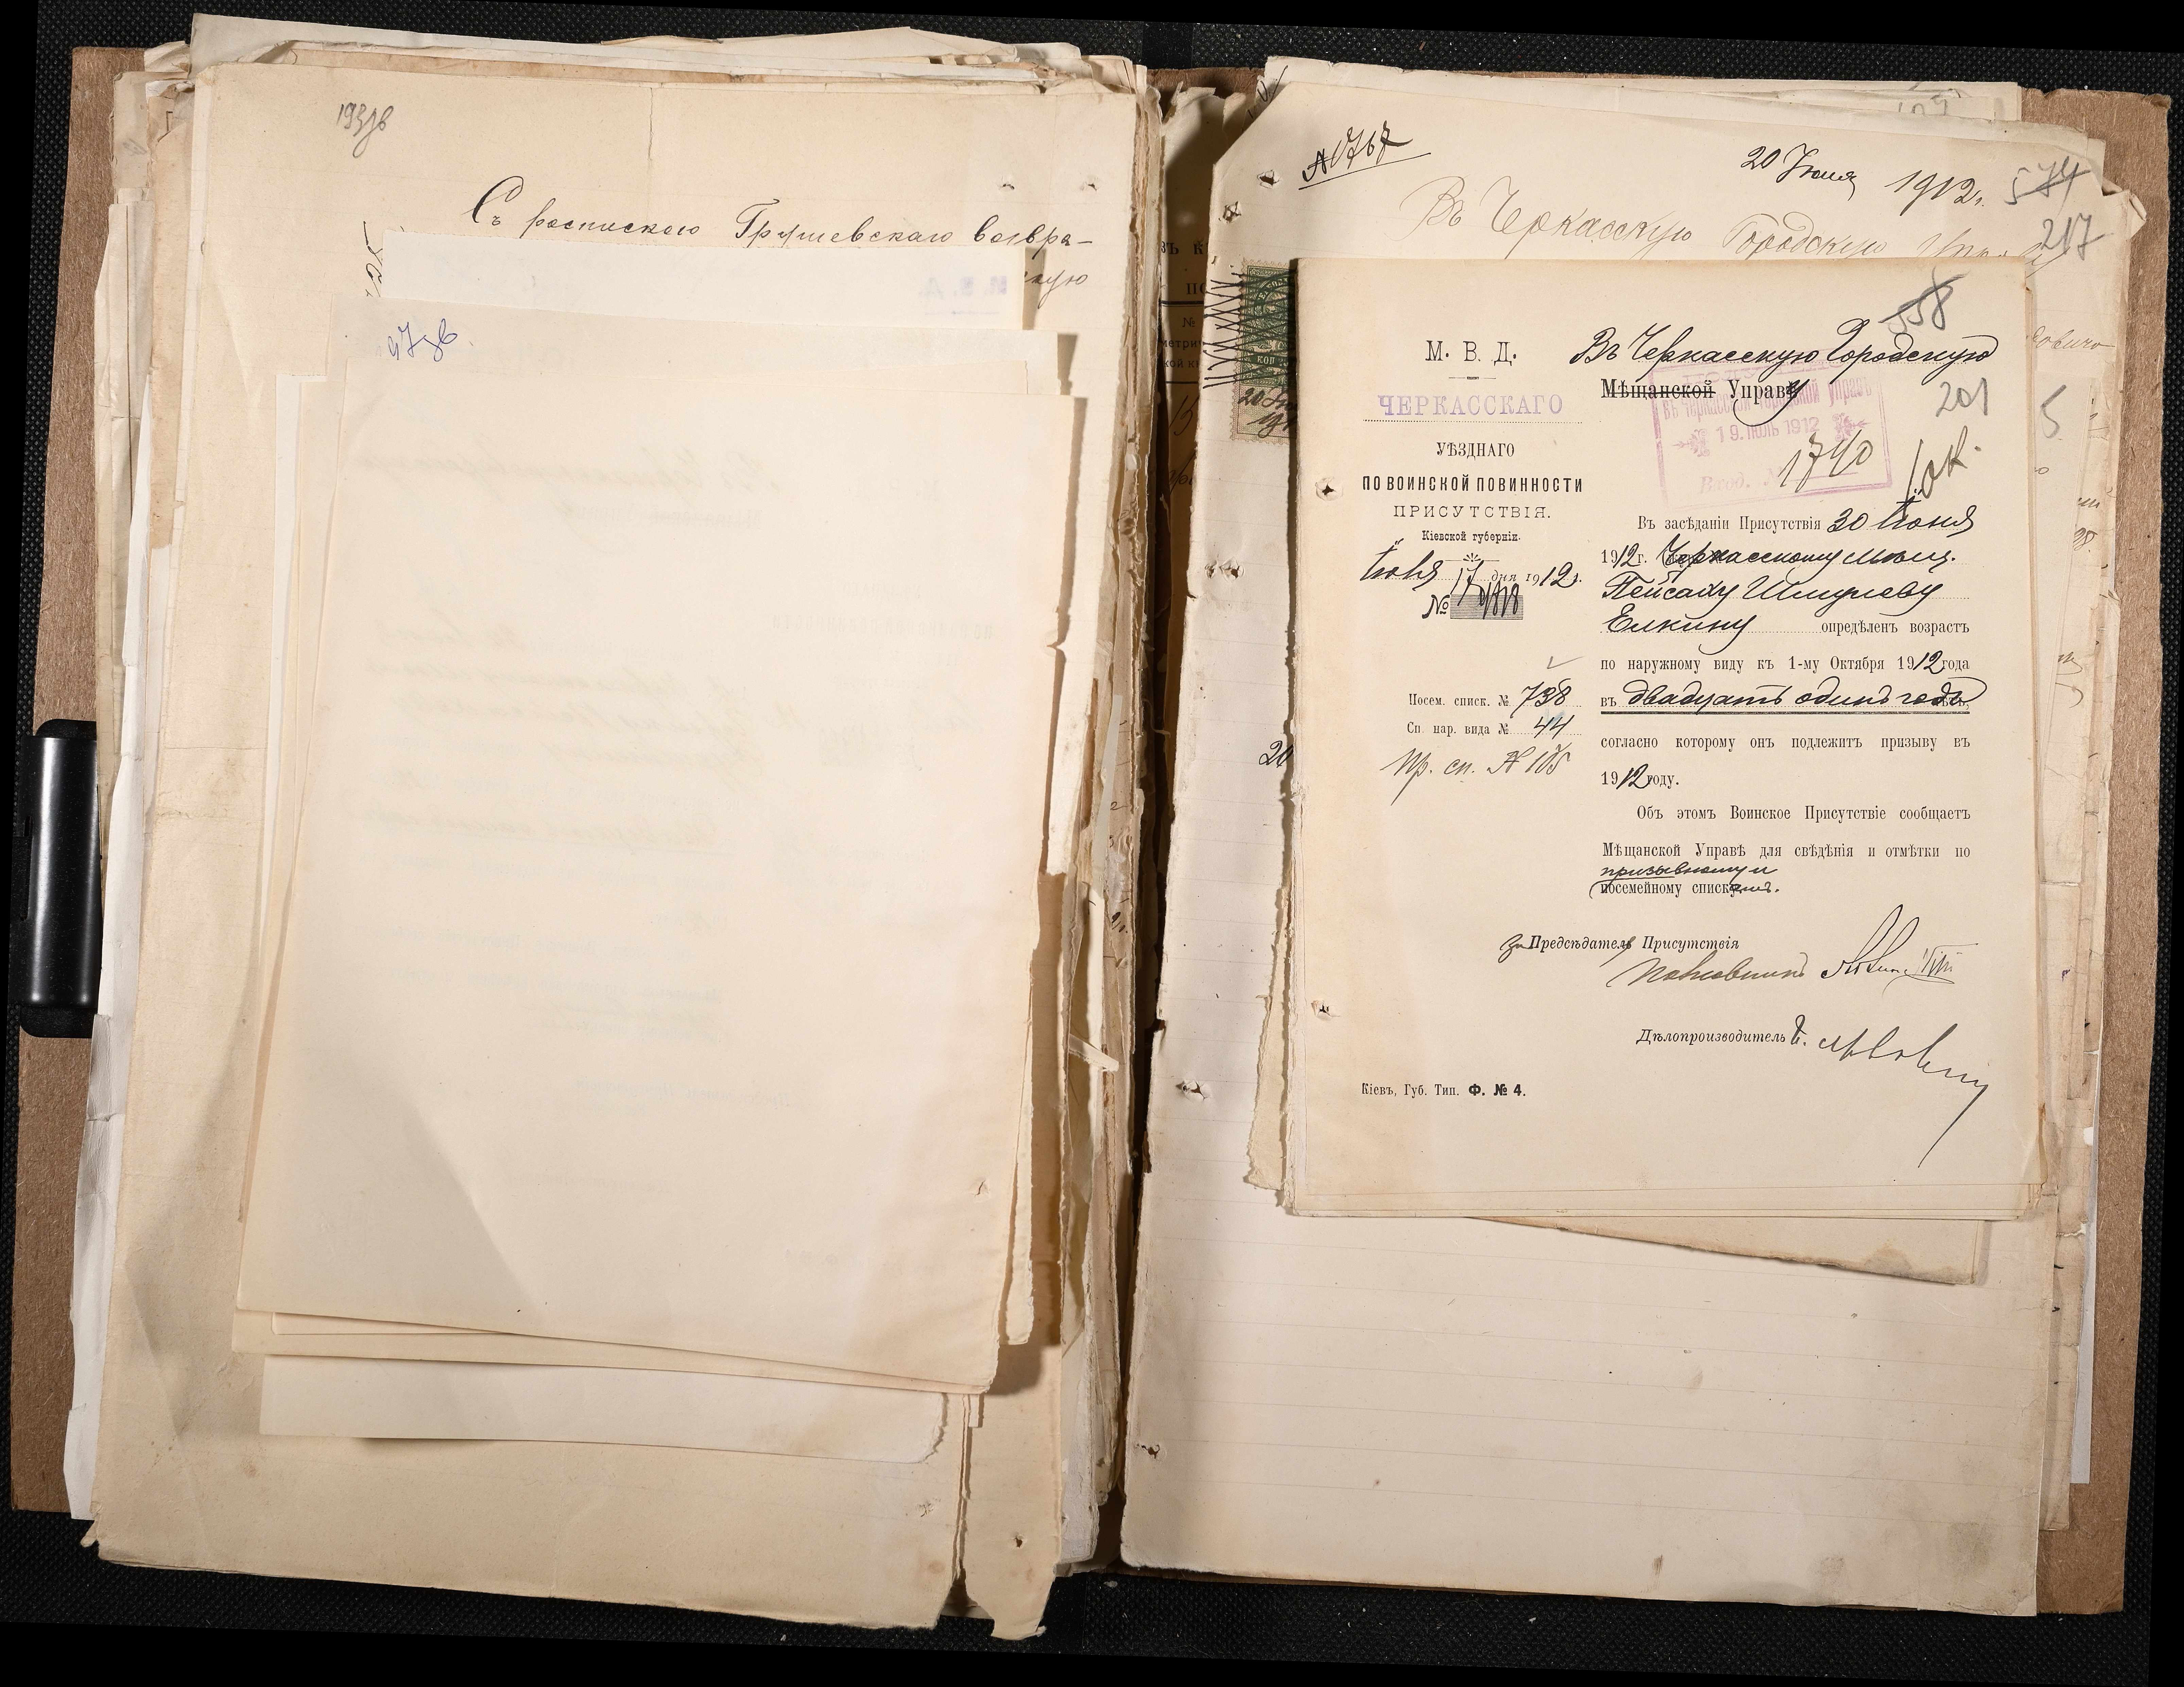 193зв
Съ роспискою Грушевскаго возвра-
47зв.
№ 1767
20 Іюля 1912 г.
574
217
Въ Черкасскую Городскую Управу
558
М. В. Д.
ЧЕРКАССКАГО
УѢЗДНАГО
ПО ВОИНСКОЙ ПОВИННОСТИ
ПРИСУТСТВІЯ.
Кіевской губерніи.
Іюля 17 дня 1912 г.
№
Посем. списк. № 738
Сп. нар. вида № 44
Пр. сп. № 105
Въ Черкасскую Городскую
Мѣщанской Управу
201
въ Черкасской Городской Управѣ
19. ІЮЛЬ 1912
Вход. № 1740
Въ засѣданіи Присутствія 30 Іюня
1912 г. Черкасскому мѣщ.
Пейсаху Шмулеву
Елкину опредѣленъ возрастъ
по наружному виду къ 1-му Октября 1912 года
въ двадцать одинъ годъ
согласно которому онъ подлежитъ призыву въ
1912 году.
Объ этомъ Воинское Присутствіе сообщаетъ
Мѣщанской Управѣ для свѣдѣнія и отмѣтки по
призывному и
посемейному спискамъ.
За Предсѣдателя Присутствія
Полковникъ
Дѣлопроизводитель
Кіевъ, Губ. Тип. Ф. № 4.